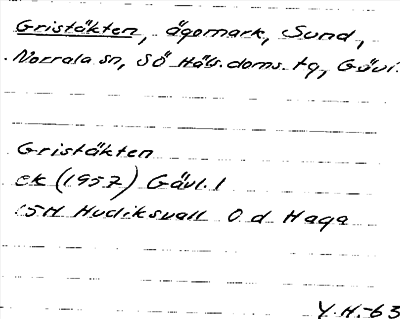 Gristäkten, ägomark, Sund,
Norrala sn, Sö Häls. doms. tg, Gävl.
Gristäkten
ek (1957) Gävl. l
15H Hudiksvall 0 d Haga
Y.H.-63